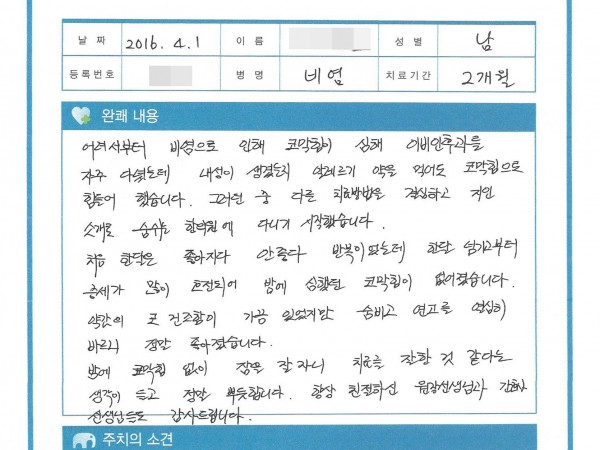 날 짜 2016. 4. 1 이 름 성 별 남
등록번호 병 명 비염 치료기간 2개월
완쾌 내용
어려서부터 비염으로 인해 코막힘이 심해 이비인후과를
자주 다녔는데 내성이 생겼는지 알레르기 약을 먹어도 코막힘으로
힘들어 했습니다. 그러던 중 다른 치료방법을 결심하고 지인
소개로 숨쉬는 한의원에 다니기 시작했습니다.
처음 한달은 좋아지다 안좋다 반복이 있는데 한달 넘기고부터
증세가 많이 호전되어 밤에 심했던 코막힘이 없어졌습니다.
약간의 코 건조함이 가끔 있었지만 숨비고 연고를 열심히
바르니 정말 좋아졌습니다.
밤에 코막힘 없이 잠을 잘 자니 치료를 잘한 것 같다는
생각이 들고 정말 뿌듯합니다. 항상 친절하신 원장선생님과 간호사
선생님들도 감사드립니다.
주치의 소견